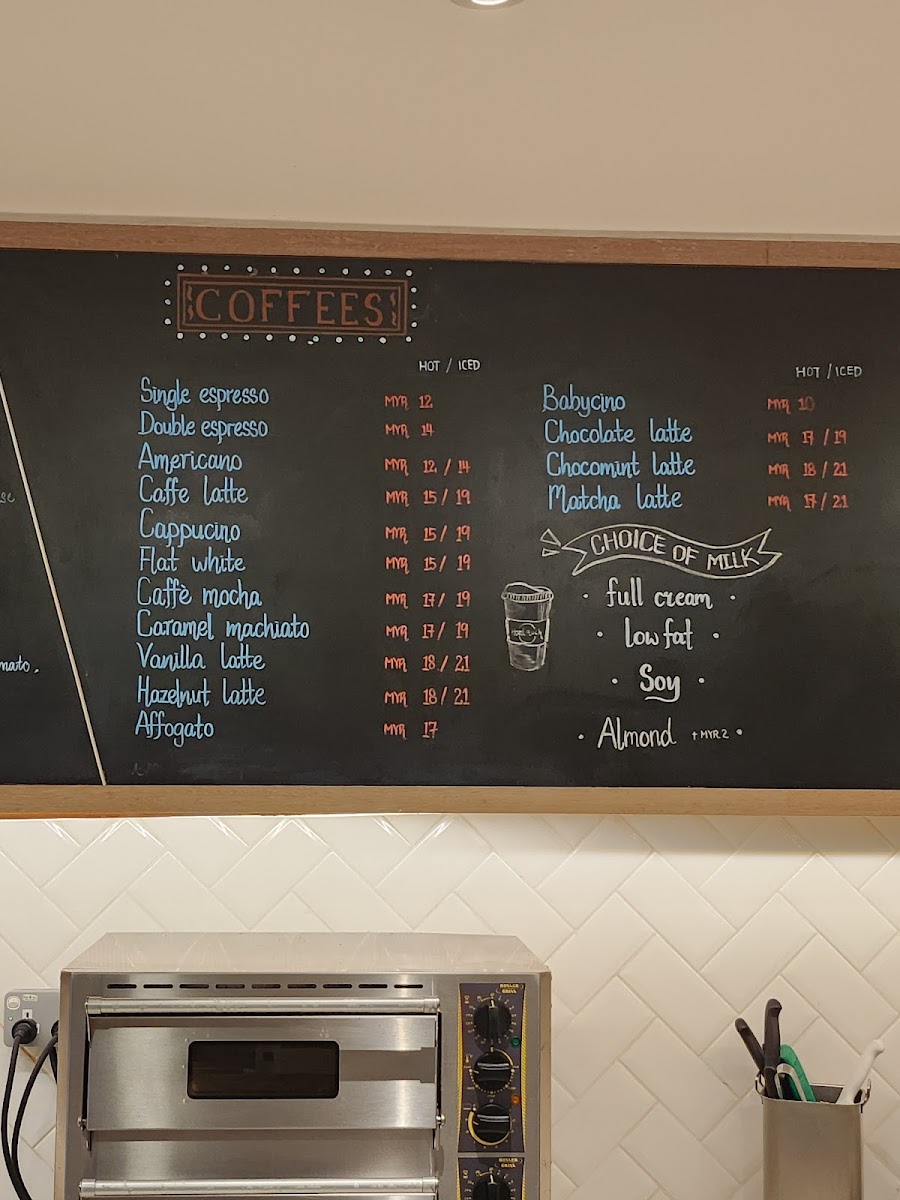 COFFEES
HOT / ICED
Single espresso MYR 12
Double espresso MYR 14
Americano MYR 12 / 14
Caffe latte MYR 15 / 19
Cappucino MYR 15 / 19
Flat white MYR 15 / 19
Caffè mocha MYR 17 / 19
Caramel machiato MYR 17 / 19
Vanilla latte MYR 18 / 21
Hazelnut latte MYR 18 / 21
Affogato MYR 17
HOT / ICED
Babycino MYR 10
Chocolate latte MYR 17 / 19
Chocomint latte MYR 18 / 21
Matcha latte MYR 17 / 21
CHOICE OF MILK
• full cream •
• low fat •
• Soy •
• Almond + MYR 2 •
mato.
ROLLER
GRILL
ROLLER
GRILL